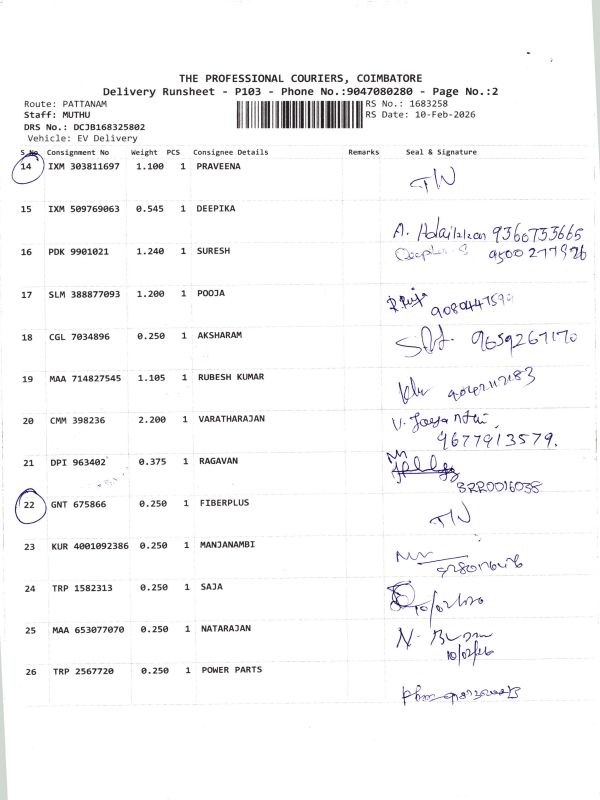 THE PROFESSIONAL COURIERS, COIMBATORE
Delivery Runsheet - P103 - Phone No.:9047080280 - Page No.:2
Route: PATTANAM
RS No.: 1683258
Staff: MUTHU
RS Date: 10-Feb-2026
DRS No.: DCJB168325802
Vehicle: EV Delivery
S.No Consignment No Weight PCS Consignee Details Remarks Seal & Signature
14 IXM 303811697 1.100 1 PRAVEENA
T/N
15 IXM 509769063 0.545 1 DEEPIKA
9360753665
16 PDK 9901021 1.240 1 SURESH
9500277926
17 SLM 388877093 1.200 1 POOJA
18 CGL 7034896 0.250 1 AKSHARAM
9659267170
19 MAA 714827545 1.105 1 RUBESH KUMAR
20 CMM 398236 2.200 1 VARATHARAJAN
9677913579.
21 DPI 963402 0.375 1 RAGAVAN
BRR0016038
22 GNT 675866 0.250 1 FIBERPLUS
T/N
23 KUR 4001092386 0.250 1 MANJANAMBI
24 TRP 1582313 0.250 1 SAJA
25 MAA 653077070 0.250 1 NATARAJAN
10/02/26
26 TRP 2567720 0.250 1 POWER PARTS